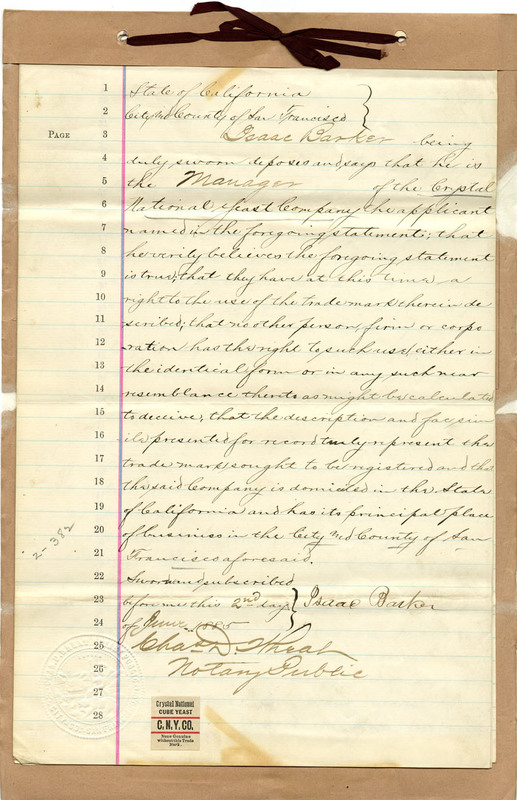 1 State of California
2 City and County of San Francisco
PAGE 3 Isaac Barker being
4 duly sworn deposes and says that he is
5 the Manager of the Crystal
6 National Yeast Company the applicant
7 named in the foregoing statement; that
8 he verily believes the foregoing statement
9 is true; that they have at this time, a
10 right to the use of the trade mark therein de
11 scribed; that no other person, firm or corpo
12 ration has the right to such use, either in
13 the identical form or in any such near
14 resemblance thereto as might be calculated
15 to deceive; that the description and fac sim
16 ile presented for record truly represent the
17 trade mark sought to be registered and that
18 the said Company is domiciled in the State
19 of California and has its principal place
20 of business in the City and County of San
21 Francisco aforesaid.
22 Sworn and subscribed
23 before me this 2nd day Isaac Barker
24 of June 1885
25 Chas. D. Wheat
26 Notary Public
27
28
2-382
Crystal National
CUBE YEAST
C.N.Y.CO.
None Genuine
without this Trade
Mark.